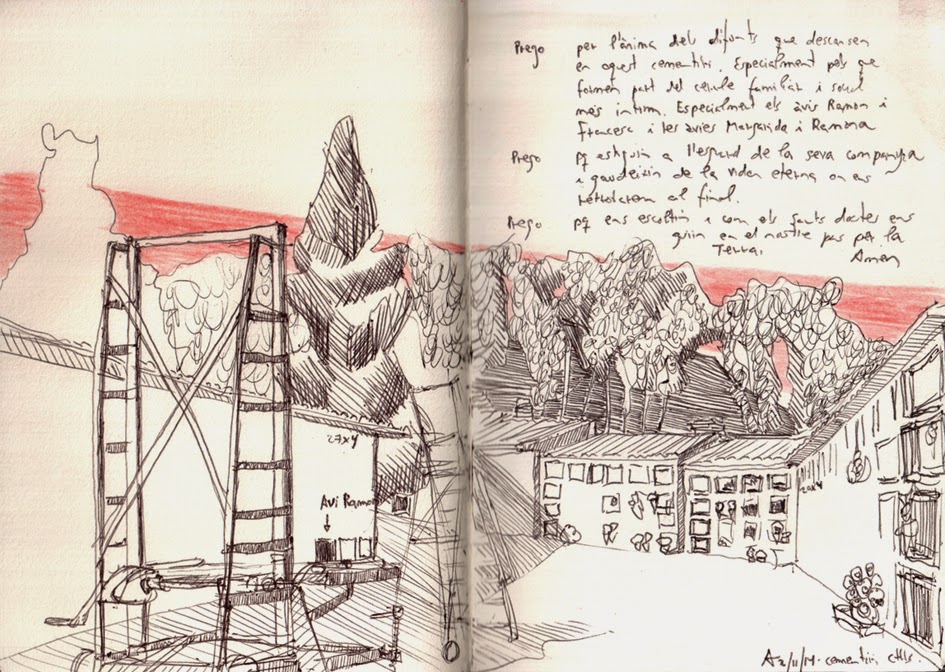 Prego per l'ànima dels difunts que descansen
en aquest cementiri. Especialment pels que
formen part del cercle familiar i social
més íntim. Especialment els avis Ramon i
Francesc i les àvies Margarida i Ramona
Prego pq estiguin a l'espera de la seva companyia
i gaudeixin de la vida eterna on ens
retrobarem al final.
Prego pq ens escoltin i com els sants doctes ens
guiin en el nostre pas per la
Terra. Amen
27x4
Avi Ramon
cementiri